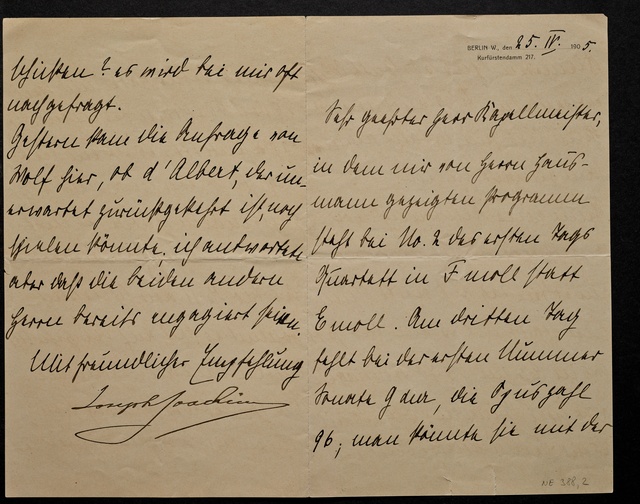 BERLIN W., den 25. IV. 1905.
Kurfürstendamm 217.
Sehr geehrter Herr Kapellmeister,
in dem mir von Herrn Haus-
mann gezeigten Programm
steht bei No. 2 des ersten Tags
Quartett in F moll statt
E moll. Am dritten Tag
fehlt bei der ersten Nummer
Sonate G dur, die Opuszahl
96; man könnte sie mit der
schicken? es wird bei mir oft
nachgefragt.
Gestern kam die Anfrage von
Wolf hier, ob d'Albert, der un-
erwartet zurückgekehrt ist, noch
spielen könnte; ich antwortete
aber daß die beiden andern
Herrn bereits engagiert seien.
Mit freundlicher Empfehlung
Joseph Joachim
NB 388, 2